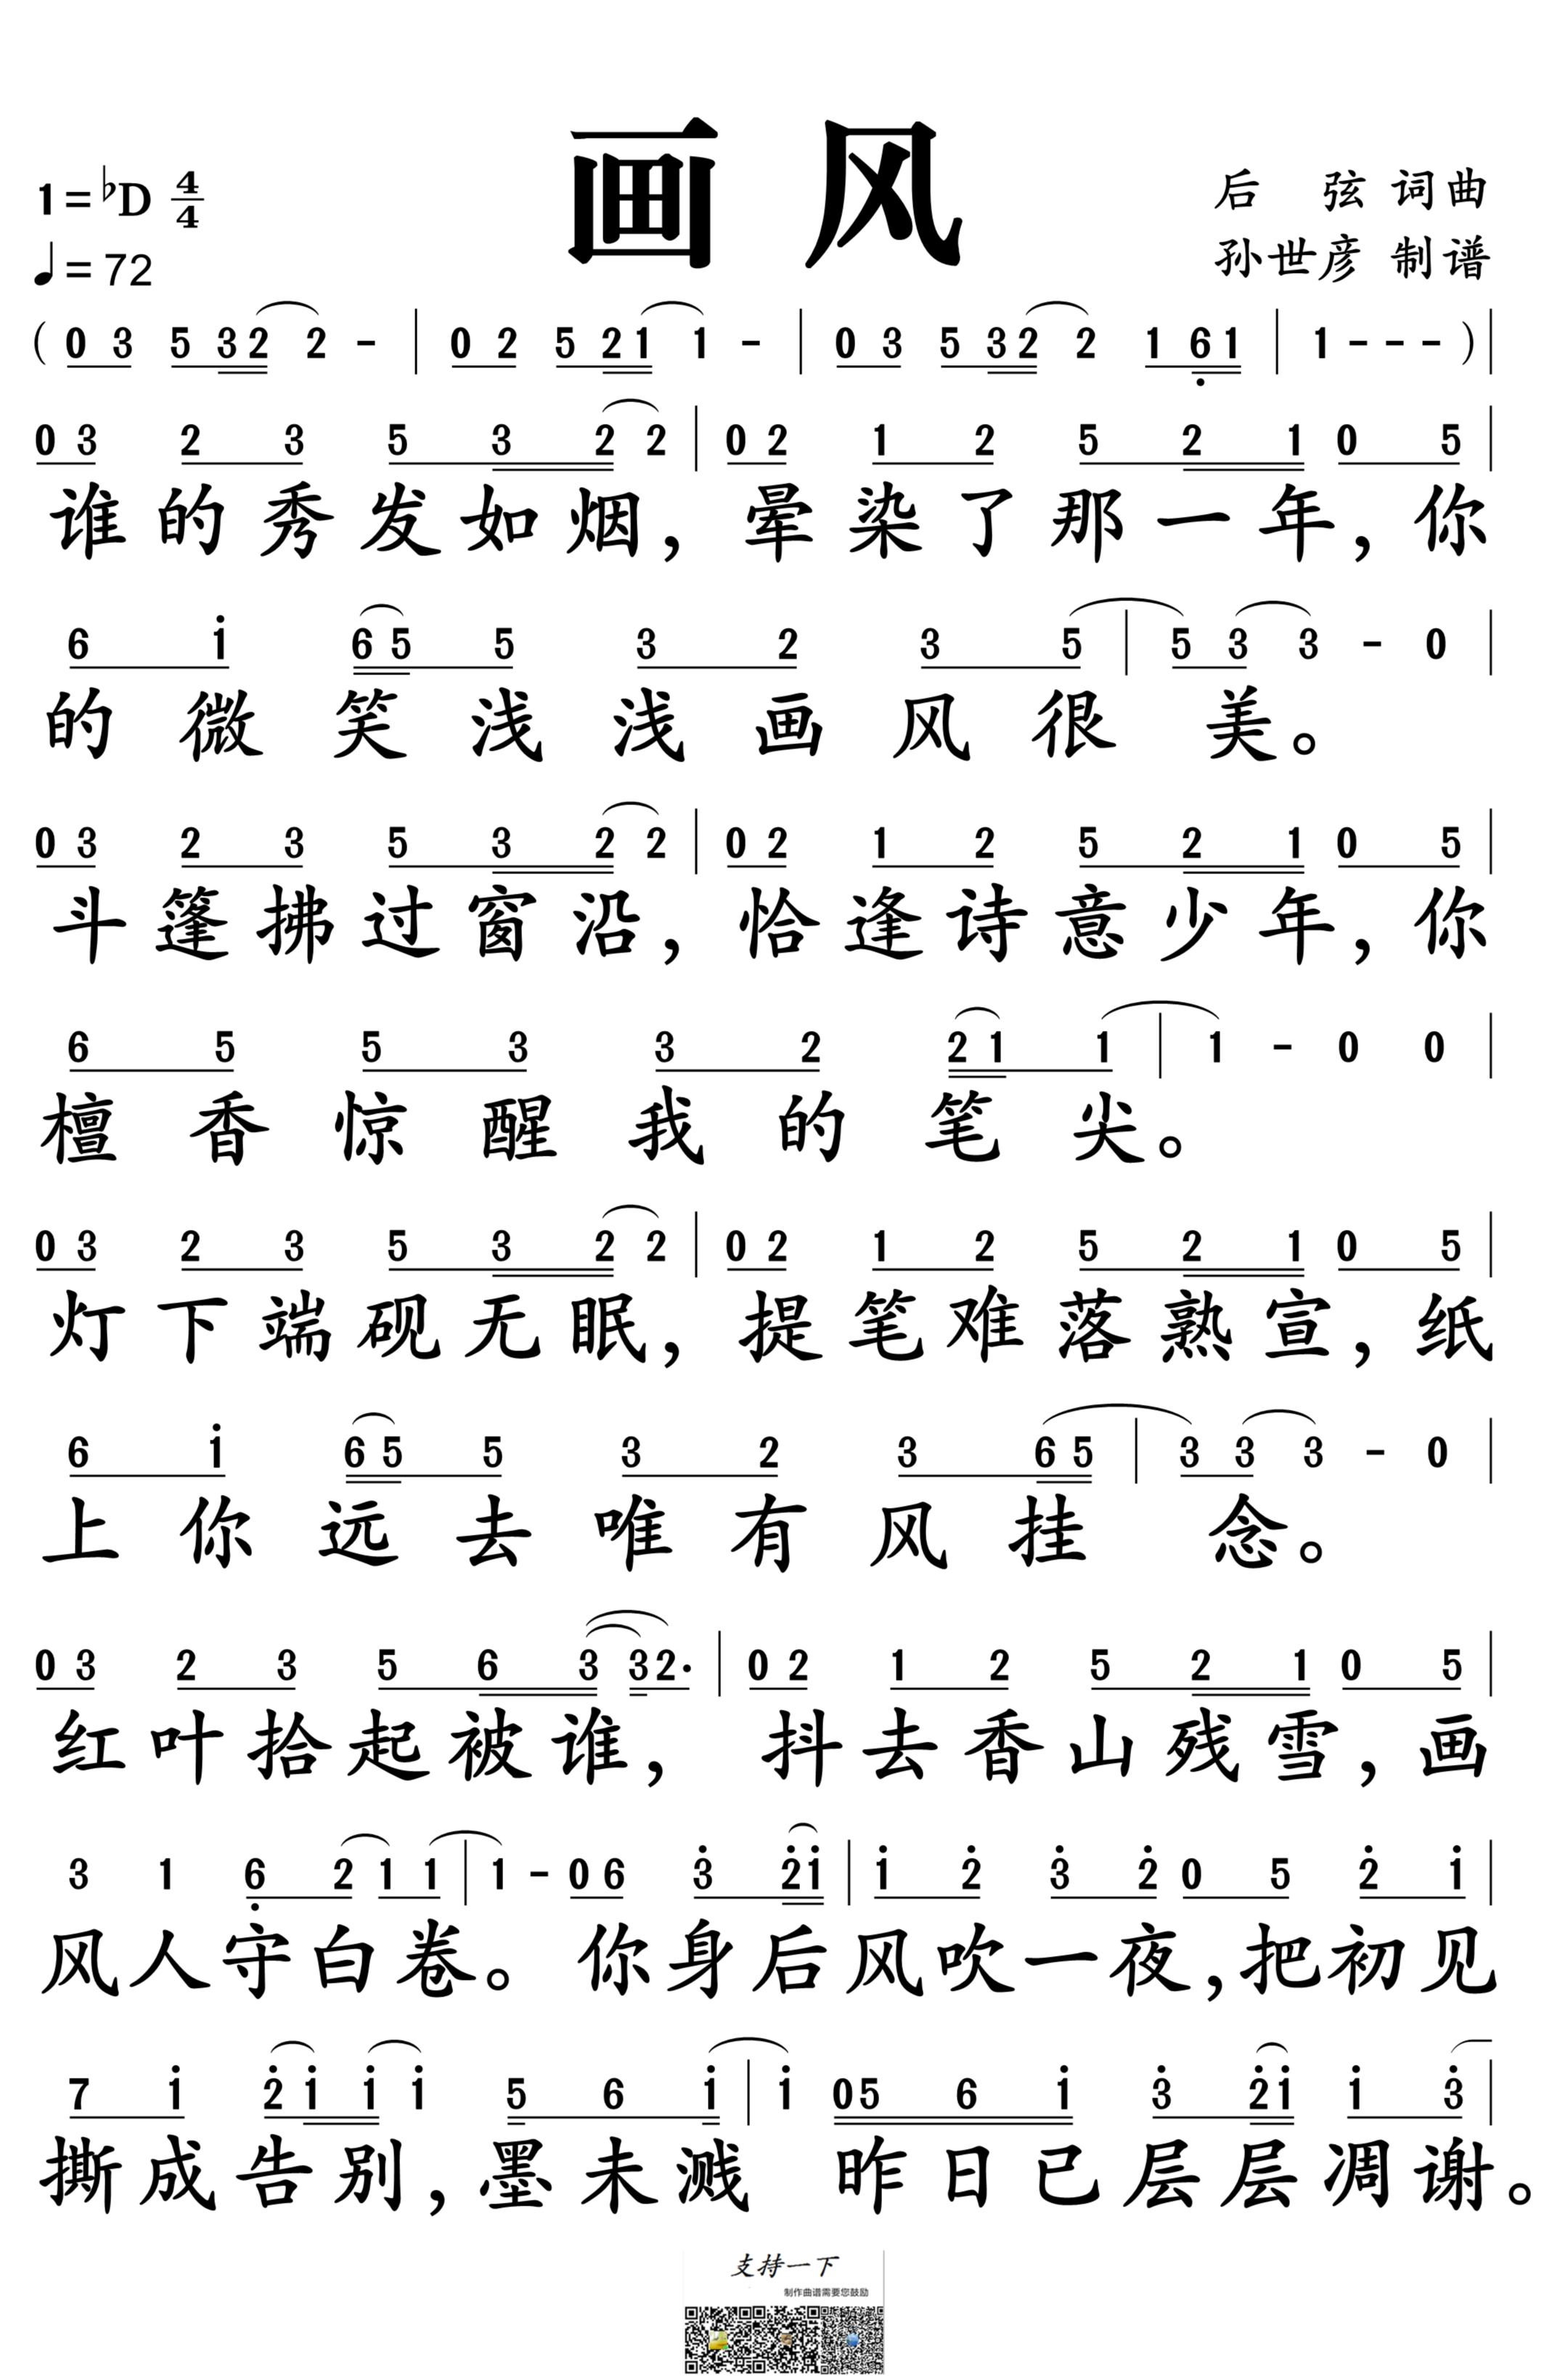 画风
1=♭D 4/4
♩=72
后 弦 词曲
孙世彦 制谱
( 0 3 5 3 2 2 - | 0 2 5 2 1 1 - | 0 3 5 3 2 2 1 6̣ 1 | 1 - - - ) |
0 3 2 3 5 3 2 2 | 0 2 1 2 5 2 1 0 5 |
谁的秀发如烟，晕染了那一年，你
6 1̇ 6 5 5 3 2 3 5 | 5 3 3 - 0 |
的微笑浅浅画风很美。
0 3 2 3 5 3 2 2 | 0 2 1 2 5 2 1 0 5 |
斗篷拂过窗沿，恰逢诗意少年，你
6 5 5 3 3 2 2 1 1 | 1 - 0 0 |
檀香惊醒我的笔尖。
0 3 2 3 5 3 2 2 | 0 2 1 2 5 2 1 0 5 |
灯下端砚无眠，提笔难落熟宣，纸
6 1̇ 6 5 5 3 2 3 6 5 | 3 3 3 - 0 |
上你远去唯有风挂念。
0 3 2 3 5 6 3 3 2· | 0 2 1 2 5 2 1 0 5 |
红叶拾起被谁，抖去香山残雪，画
3 1 6̣ 2 1 1 | 1 - 0 6 3̇ 2̇ 1̇ | 1̇ 2̇ 3̇ 2̇ 0 5 2̇ 1̇ |
风人守白卷。你身后风吹一夜，把初见
7 1̇ 2̇ 1̇ 1̇ 1̇ 5 6 1̇ | 1̇ 0 5 6 1̇ 3̇ 2̇ 1̇ 1̇ 3̇ |
撕成告别，墨未溅 昨日已层层凋谢。
支持一下
制作曲谱需要您鼓励